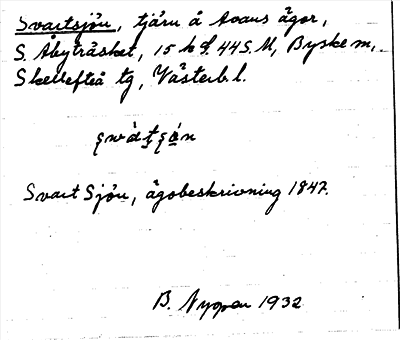 Svartsjön, tjärn å Avans ägor,
S. Åbyträsket, 15 h d. 445. M, Byske m,.
Skellefteå tg, Västerb. l.
Svart Sjön, ägobeskrivning 1847.
B. Nyman 1932